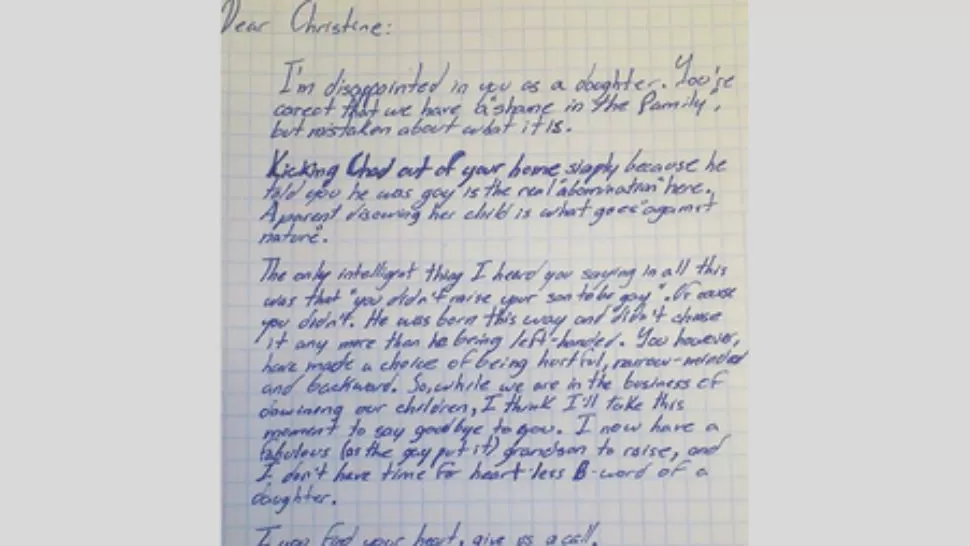 Dear Christine:
I'm disappointed in you as a daughter. You're
corect that we have a "shame in the family",
but mistaken about what it is.
Kicking Chad out of your home simply because he
told you he was gay is the real "abomination" here.
A parent disowning her child is what goes "against
nature".
The only intelligent thing I heard you saying in all this
was that "you didn't raise your son to be gay". Of course
you didn't. He was born this way and didn't choose
it any more than he being left-handed. You however,
have made a choice of being hurtful, narrow-minded
and backward. So, while we are in the business of
disowning our children, I think I'll take this
moment to say goodbye to you. I now have a
fabulous (as the gay put it) grandson to raise, and
I don't have time for heart-less B-word of a
daughter.
If you find your heart, give us a call.